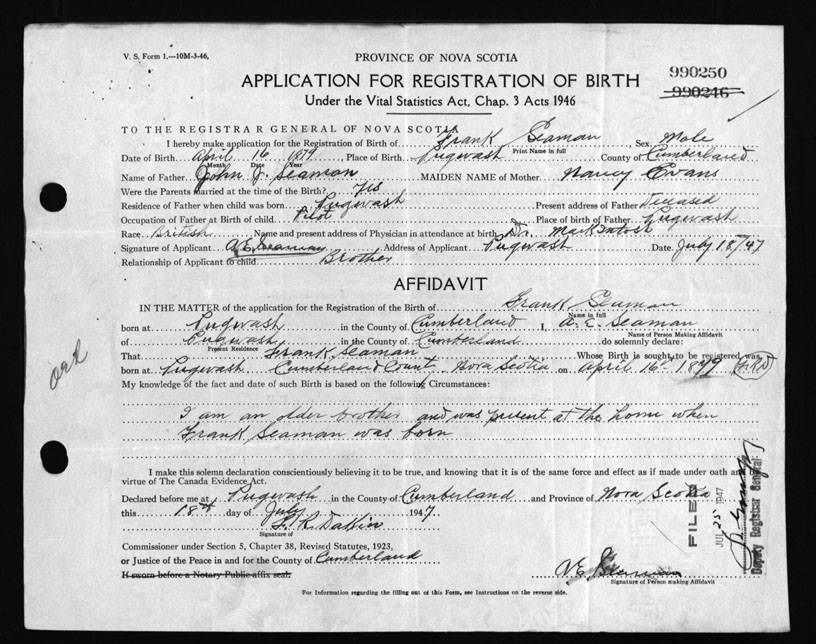 V. S. Form 1.—10M-3-46,
PROVINCE OF NOVA SCOTIA
APPLICATION FOR REGISTRATION OF BIRTH
Under the Vital Statistics Act, Chap. 3 Acts 1946
990250
990246
TO THE REGISTRAR GENERAL OF NOVA SCOTIA
I hereby make application for the Registration of Birth of Frank Seaman Sex Male
Print Name in full
Date of Birth April 16 1879 Place of Birth Pugwash County of Cumberland
Month Date Year
Name of Father John J. Seaman MAIDEN NAME of Mother Nancy Evans
Were the Parents married at the time of the Birth? Yes
Residence of Father when child was born Pugwash Present address of Father Deceased
Occupation of Father at Birth of child Pilot Place of birth of Father Pugwash
Race British Name and present address of Physician in attendance at birth Dr. Mackintosh
Signature of Applicant A.E. Seaman Address of Applicant Pugwash Date July 18/47
Relationship of Applicant to child Brother
AFFIDAVIT
IN THE MATTER of the application for the Registration of the Birth of Frank Seaman
Name in full
born at Pugwash in the County of Cumberland I, A. E. Seaman
Name of Person Making Affidavit
of Pugwash in the County of Cumberland do solemnly declare:
Present Residence
That Frank Seaman Whose Birth is sought to be registered was
born at Pugwash Cumberland County Nova Scotia on April 16th
My knowledge of the fact and date of such Birth is based on the following Circumstances:
I am an older brother and was present at the home when
Frank Seaman was born
I make this solemn declaration conscientiously believing it to be true, and knowing that it is of the same force and effect as if made under oath and
virtue of The Canada Evidence Act.
Declared before me at Pugwash in the County of Cumberland and Province of Nova Scotia
this 18th day of July 1947
L. R. Dakin
Signature of
Commissioner under Section 5, Chapter 38, Revised Statutes, 1923,
or Justice of the Peace in and for the County of Cumberland
If sworn before a Notary Public affix seal.
A E Seaman
Signature of Person making Affidavit
For Information regarding the filling out of this Form, see Instructions on the reverse side.
FILED
JUL 25 1947
Deputy Registrar General